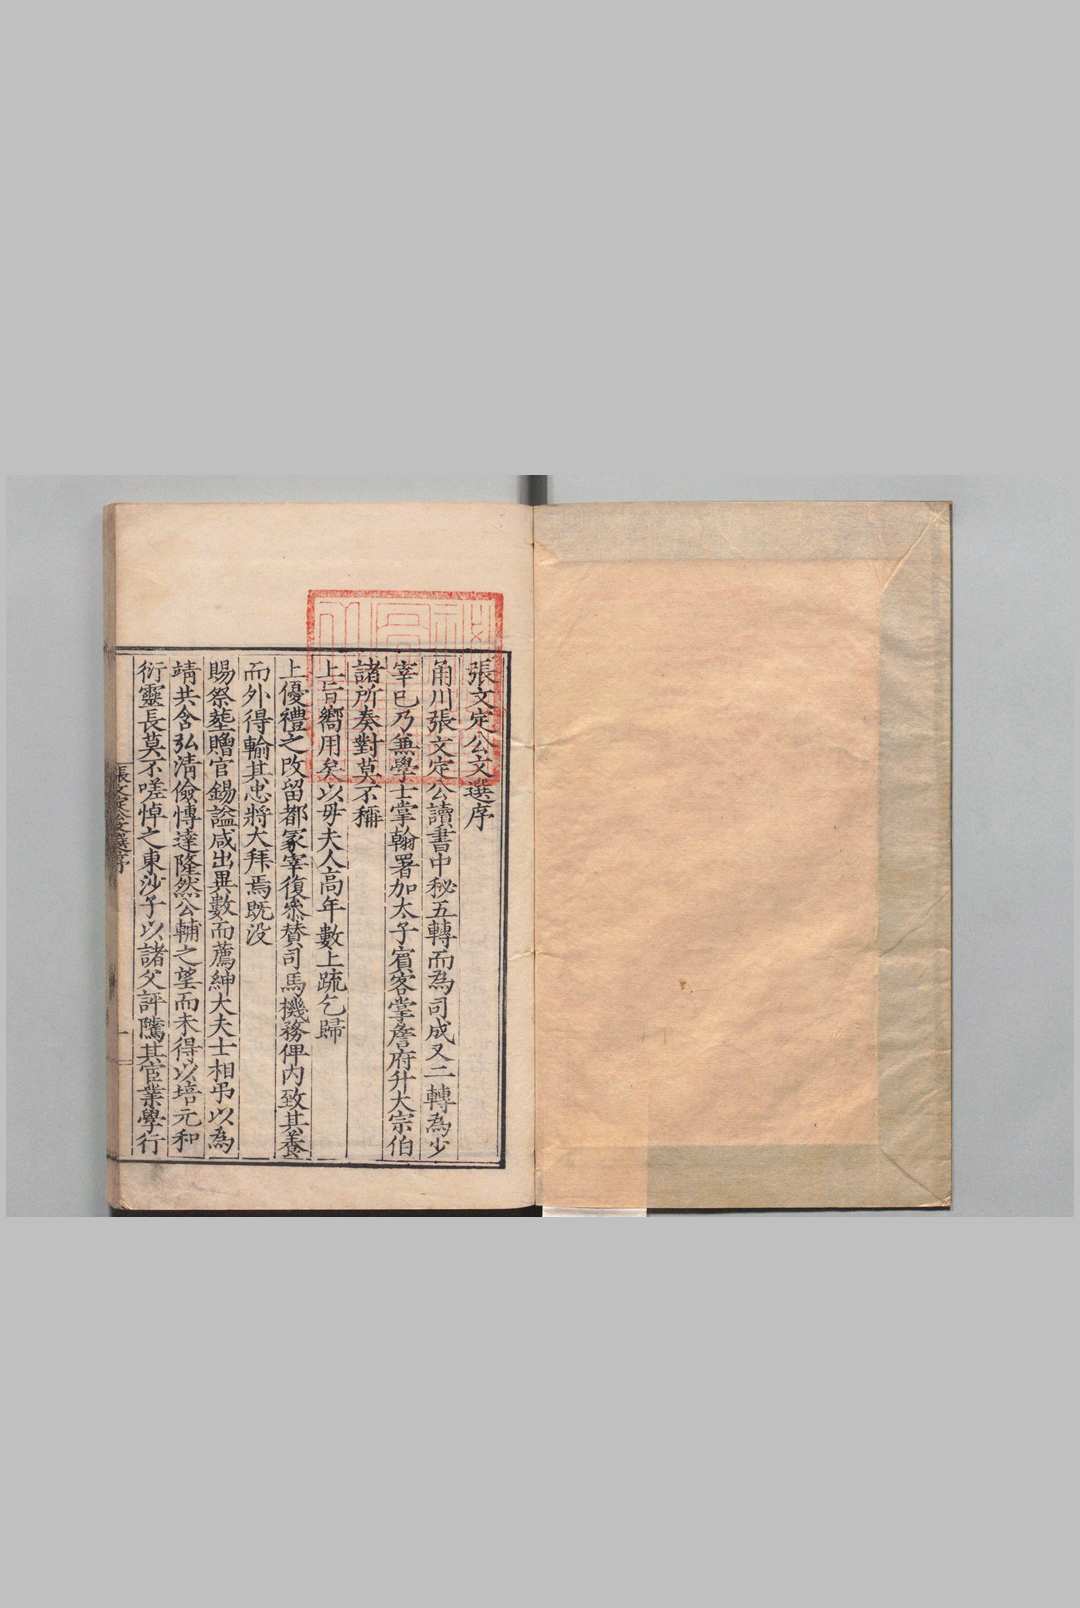 張文定公文選序
甬川張文定公讀書中秘五轉而為司成又二轉為少
宰巳乃兼學士掌翰署加太子賓客掌詹府升大宗伯
諸所奏對莫不稱
上旨嚮用矣以毋夫人高年數上疏乞歸
上優禮之改留都冢宰復叅賛司馬機務俾内致其養
而外得輸其忠將大拜焉既没
賜祭塟贈官錫謚咸出異數而薦紳大夫士相弔以為
靖共含弘清儉愽達隆然公輔之望而未得以培元和
衍靈長莫不嗟悼之東沙子以諸父評隲其宦業學行
張文定公文選序
一